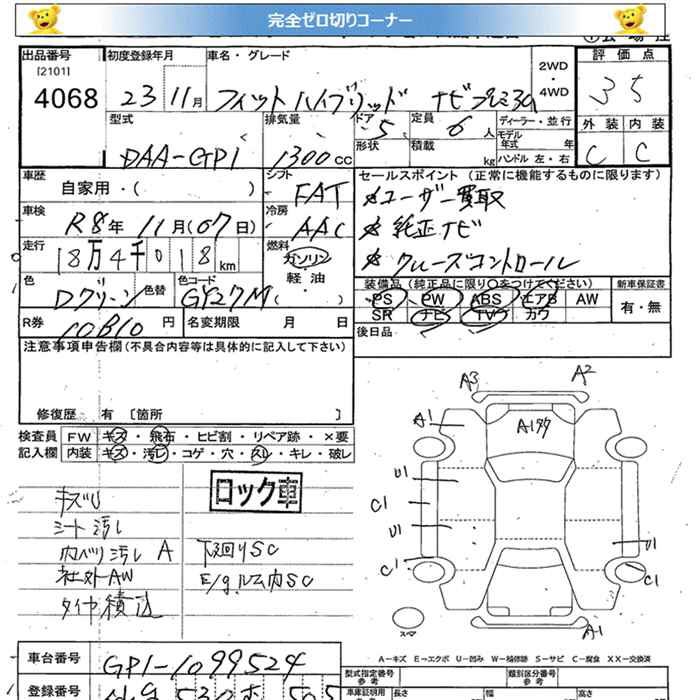 完全ゼロ切りコーナー
出品番号 初度登録年月 車名・グレード 2WD・4WD 評価点
[2101]
4068 23 11月 フィットハイブリッド ナビプレミアム 35
型式 排気量 ドア 定員 ディーラー・並行 外装 内装
5 6人 モデル年式 年
DAA-GP1 1300cc 形状 積載 kg ハンドル 左・右 C C
車歴 シフト セールスポイント (正常に機能するものに限ります)
自家用・( ) FAT ☆ユーザー買取
車検 R8年 11月(07日) 冷房 AAC ☆純正ナビ
走行 18万4千018km 燃料 ガソリン ☆クルーズコントロール
軽油
色 色替 色コード 装備品 (純正品に限り○をつけてください) 新車保証書
Dグリーン GY27M ( ) PS PW ABS エアB AW 有・無
R券 10810円 名変期限 月 日 SR ナビ TV カワ
注意事項申告欄(不具合内容等は具体的に記入して下さい) 後日品
修復歴 有 〔箇所 〕
検査員 FW キズ・飛石・ヒビ割・リペア跡・×要
記入欄 内装 キズ・汚レ・コゲ・穴・スレ・キレ・破レ
ロック車
キズU
シート汚レ
内ハリ汚レ A 下廻りSC
社外AW E/gルーム内SC
タイヤ積込
A3 A2
A1 A1
U1
C1
U1 U1
C1 C1
スマ A-1
A−キズ E−エクボ U−凹み W−補修跡 S−サビ C−腐食 XX−交換済
車台番号 GP1-1099524 型式指定番号 類別区分番号
参考 参考
登録番号 530 505 車庫証明用 長さ 幅 高さ
参考